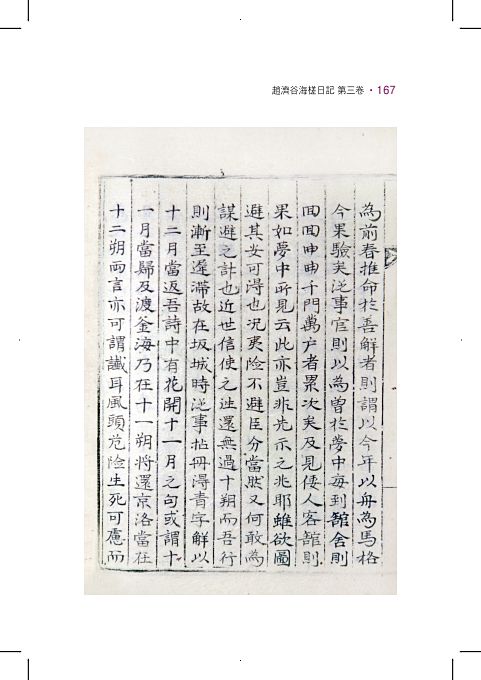 趙濟谷海槎日記 第三卷 • 167
為前春推命於善解者則謂以今年以舟為馬格
今果驗矣從事官則以為曾於夢中每到舘舍則
回回曲曲千門萬户者累次矣及見倭人客舘則
果如夢中所見云此亦豈非先示之兆耶雖欲圖
避其安可得也况夷險不避臣分當然又何敢為
謀避之計也近世信使之徃還無過十朔而吾行
則漸至遲滯故在坂城時從事拈冊得青字解以
十二月當返吾詩中有花開十一月之句或謂十
一月當歸及渡釜海乃在十一朔將還京洛當在
十二朔兩言亦可謂讖耳風頭危險生死可慮而